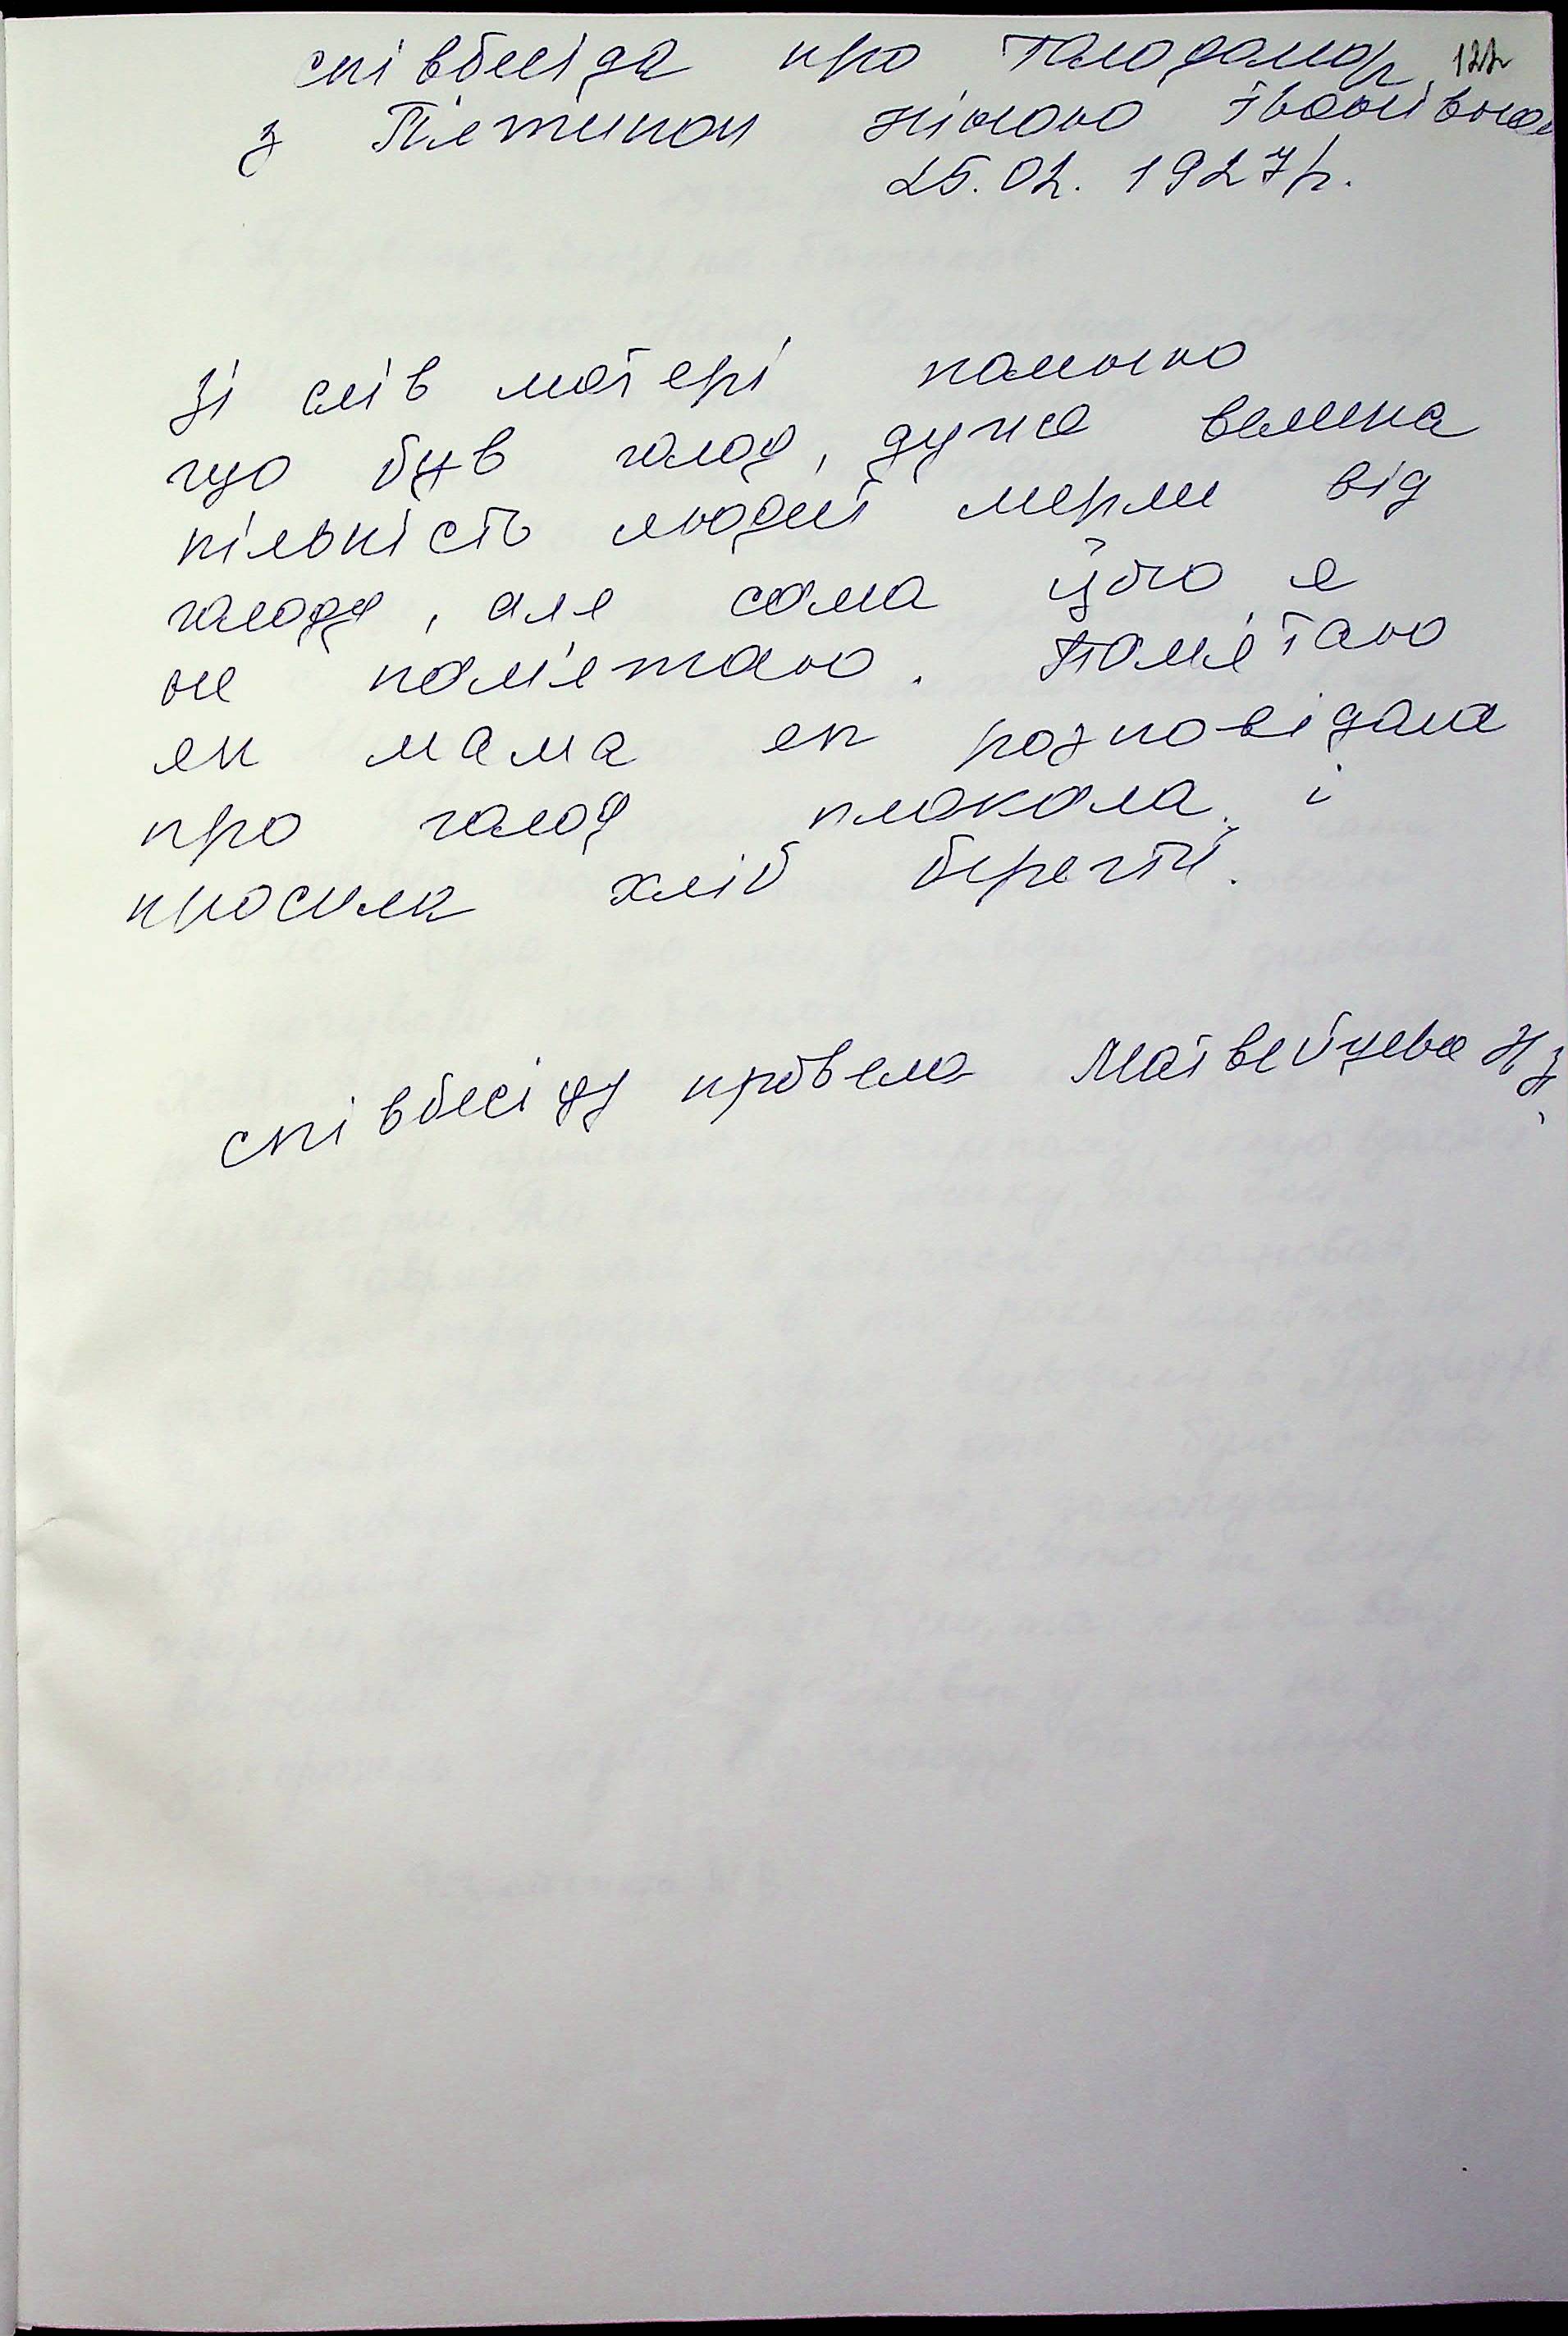 співбесіда про Голодомор 122
з Пяткпкон Ніною Іванівною
25.02.1927р.
Зі слів матері памню
що був голод, дуже велика
кількість людей мерли від
голоду, але сама цього я
не пам'ятаю. Пам'ятаю
як мама як розповідала
про голод плакала і
просила хліб берегти.
співбесіду провела Матвейцева Н